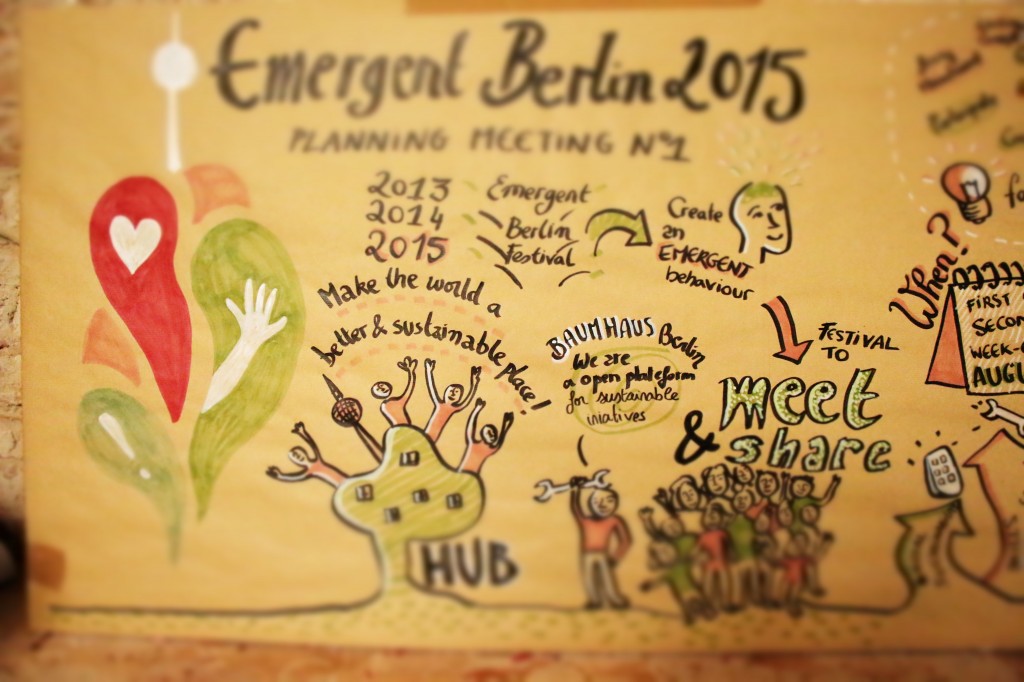 Emergent Berlin 2015
PLANNING MEETING N°1
2013
2014
2015
Emergent
Berlin
Festival
Create
an
EMERGENT
behaviour
Make the world a
better & sustainable place!
BAUMHAUS Berlin
We are
a open plateform
for sustainable
iniatives
FESTIVAL
TO
meet
& share
HUB
When?
FIRST
SECON
WEEK-
AUGU
fo